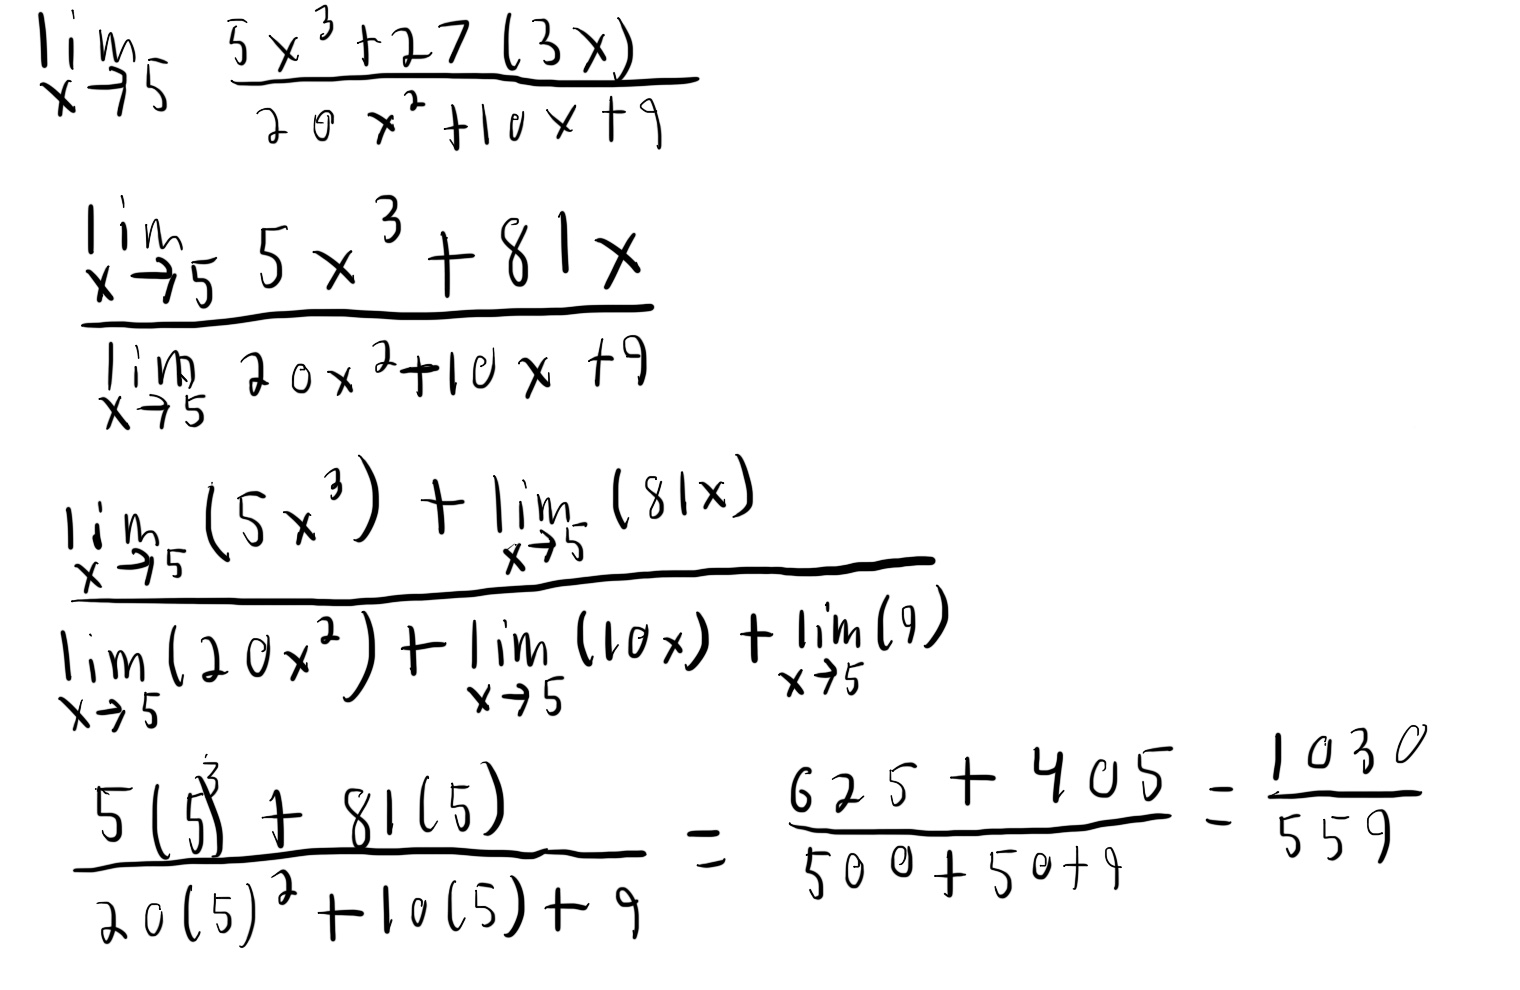 lim x→5 (5x³ + 27(3x)) / (20x² + 10x + 9)
(lim x→5 5x³ + 81x) / (lim x→5 20x² + 10x + 9)
(lim x→5 (5x³) + lim x→5 (81x)) / (lim x→5 (20x²) + lim x→5 (10x) + lim x→5 (9))
(5(5)³ + 81(5)) / (20(5)² + 10(5) + 9) = (625 + 405) / (500 + 50 + 9) = 1030 / 559